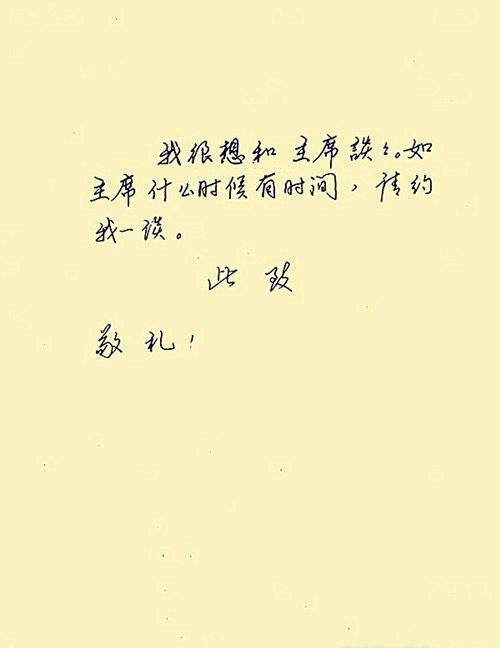 我很想和主席談々。如
主席什么时候有时间，请约
我一谈。
此致
敬礼！